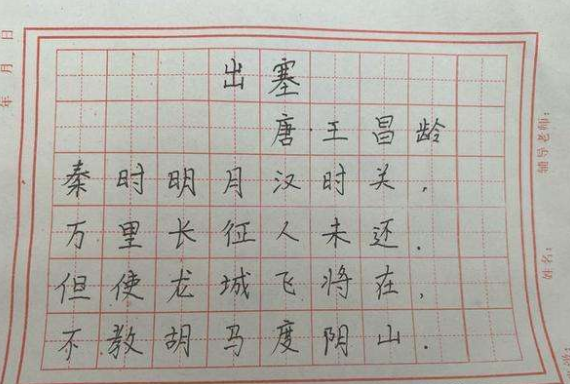 出塞
唐·王昌龄
秦时明月汉时关，
万里长征人未还.
但使龙城飞将在，
不教胡马度阴山.
年 月 日
辅导老师：
姓名：